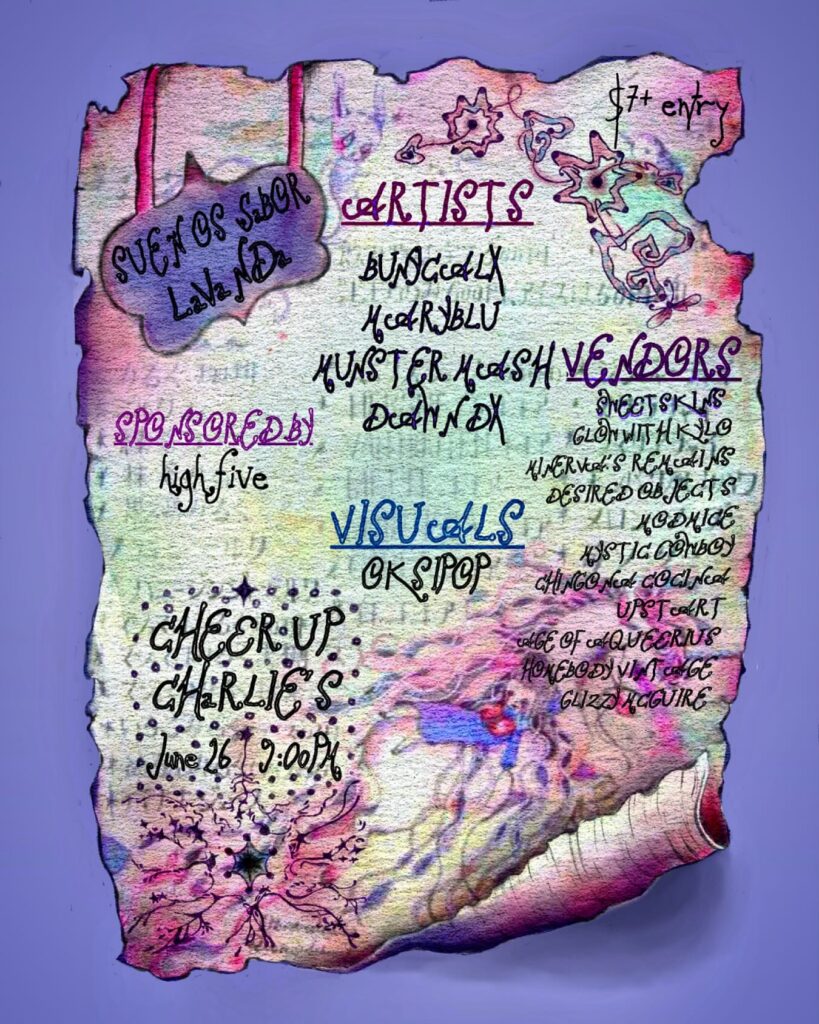 $7+ entry
SUENOS SaBOR
LaVaNDa
ARTISTS
BUNGALX
MARYBLU
MUNSTER MASH
DAWNDX
VENDORS
SWEET SKINS
GLOW WITH KYLO
MINERVA'S REMAINS
DESIRED OBJECTS
MODMICE
MYSTIC COWBOY
CHINGONA COCINA
UPSTART
AGE OF AQUEERIUS
HOMEBODY VINTAGE
GLIZZY MCGUIRE
SPONSORED BY
high five
VISUALS
OKSIPOP
CHEER UP
CHaRLIE'S
June 26 9:00PM